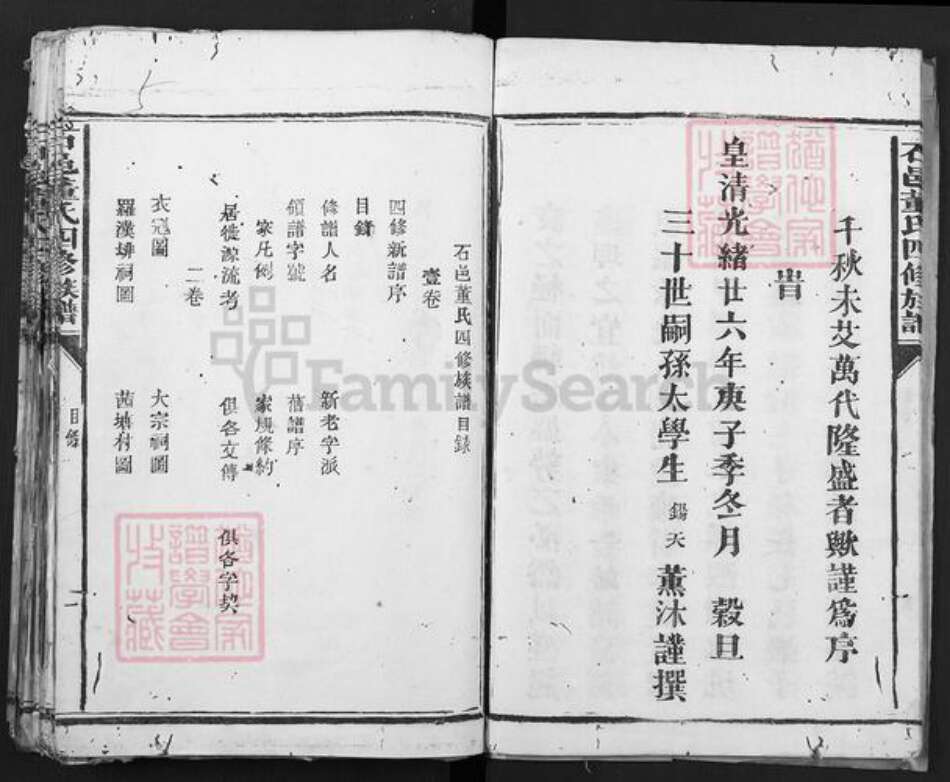 石邑董氏四修族譜
千秋未艾萬代隆盛者歟謹爲序
旹
皇清光緒廿六年庚子季冬月 穀旦
三十世嗣孫太學生 錫天 薰沐謹撰
石邑董氏四修族譜目錄
壹卷
四修新譜序
目錄
修譜人名 新老字派
領譜字號 舊譜序
家凡例 家規條約
居徙源流考 俱各文傳 俱各字契
二卷
衣冠圖 大宗祠圖
羅漢排祠圖 茜塘村圖
石邑董氏四修族譜
目錄
一
FamilySearch